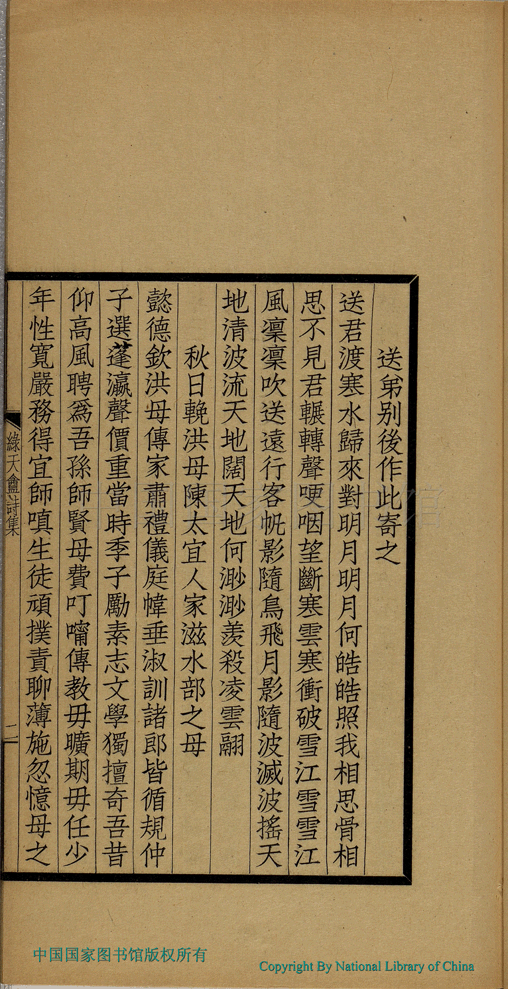 送弟别後作此寄之
送君渡寒水歸來對明月明月何皓皓照我相思骨相
思不見君輾轉聲哽咽望斷寒雲寒衝破雪江雪雪江
風凜凜吹送遠行客帆影隨鳥飛月影隨波滅波搖天
地清波流天地闊天地何渺渺羨殺凌雲翮
秋日輓洪母陳太宜人家滋水部之母
懿德欽洪母傳家肅禮儀庭幃垂淑訓諸郎皆循規仲
子選蓬瀛聲價重當時季子勵素志文學獨擅奇吾昔
仰高風聘為吾孫師賢母費叮嚀傳教毋曠期毋任少
年性寬嚴務得宜師嗔生徒頑撲責聊薄施忽憶母之
綠天盦詩集
二
中国国家图书馆版权所有
Copyright By National Library of China